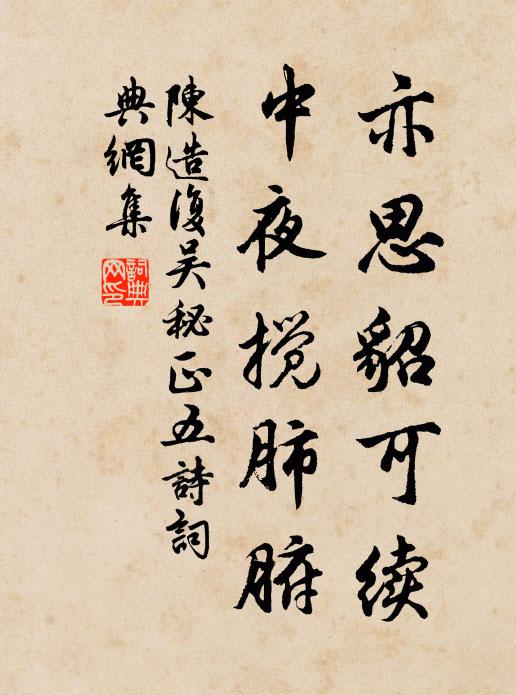 亦思貂可续
中夜搅肺腑
陳造復吴秘正五詩詞
典網集
詞典网印